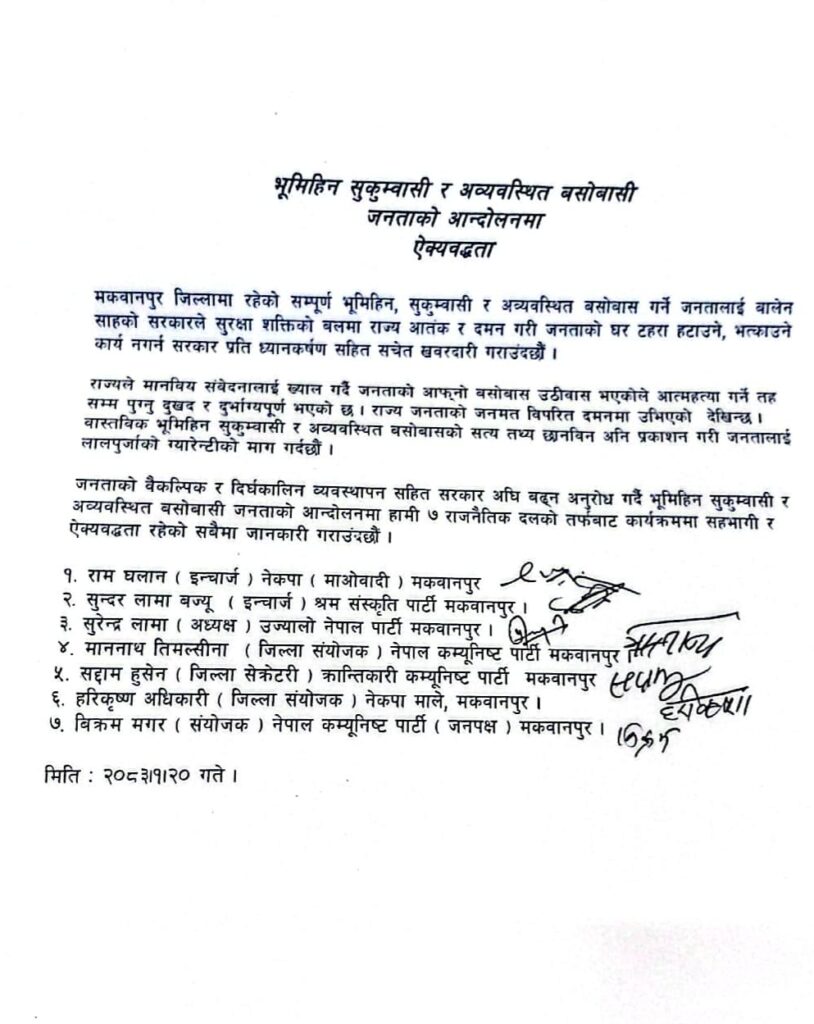 भूमिहिन सुकुम्वासी र अव्यवस्थित बसोबासी
जनताको आन्दोलनमा
ऐक्यवद्धता
मकवानपुर जिल्लामा रहेको सम्पूर्ण भूमिहिन, सुकुम्वासी र अव्यवस्थित बसोबास गर्ने जनतालाई बालेन
साहको सरकारले सुरक्षा शक्तिको बलमा राज्य आतंक र दमन गरी जनताको घर टहरा हटाउने, भत्काउने
कार्य नगर्न सरकार प्रति ध्यानकर्षण सहित सचेत खवरदारी गराउंदछौं ।
राज्यले मानविय संबेदनालाई ख्याल गर्दै जनताको आफ्नो बसोबास उठीवास भएकोले आत्महत्या गर्ने तह
सम्म पुग्नु दुखद र दुर्भाग्यपूर्ण भएको छ । राज्य जनताको जनमत विपरित दमनमा उभिएको देखिन्छ ।
वास्तविक भूमिहिन सुकुम्वासी र अव्यवस्थित बसोबासको सत्य तथ्य छानविन अनि प्रकाशन गरी जनतालाई
लालपुर्जाको ग्यारेन्टीको माग गर्दछौं ।
जनताको वैकल्पिक र दिर्घकालिन व्यवस्थापन सहित सरकार अघि बढ्न अनुरोध गर्दै भूमिहिन सुकुम्वासी र
अव्यवस्थित बसोबासी जनताको आन्दोलनमा हामी ७ राजनैतिक दलको तर्फबाट कार्यक्रममा सहभागी र
ऐक्यवद्धता रहेको सबैमा जानकारी गराउंदछौं ।
१. राम घलान ( इन्चार्ज ) नेकपा ( माओवादी ) मकवानपुर
२. सुन्दर लामा बज्यू ( इन्चार्ज ) श्रम संस्कृति पार्टी मकवानपुर ।
३. सुरेन्द्र लामा ( अध्यक्ष ) उज्यालो नेपाल पार्टी मकवानपुर ।
४. माननाथ तिमल्सीना ( जिल्ला संयोजक ) नेपाल कम्यूनिष्ट पार्टी मकवानपुर ।
५. सद्दाम हुसेन ( जिल्ला सेक्रेटरी ) क्रान्तिकारी कम्यूनिष्ट पार्टी मकवानपुर
६. हरिकृष्ण अधिकारी ( जिल्ला संयोजक ) नेकपा माले, मकवानपुर ।
७. विक्रम मगर ( संयोजक ) नेपाल कम्यूनिष्ट पार्टी ( जनपक्ष ) मकवानपुर । विक्रम
मिति : २०८३।१।२० गते ।